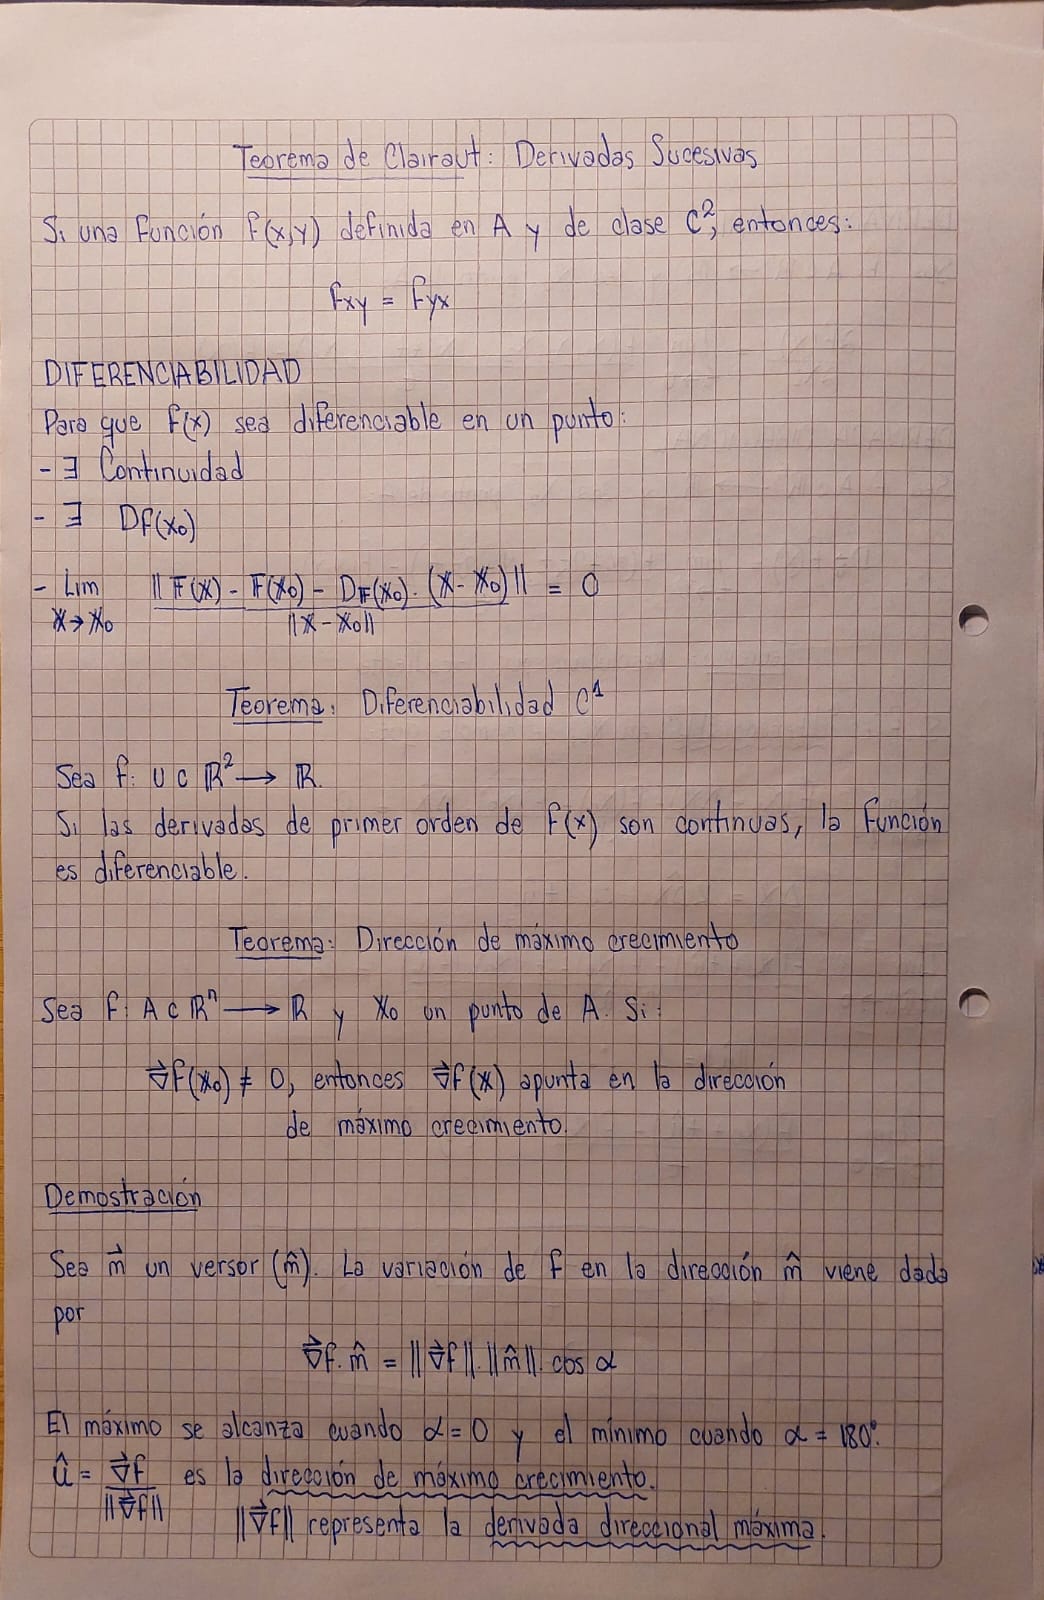 Teorema de Clairaut: Derivadas Sucesivas
Si una función f(x,y) definida en A y de clase C², entonces:
fxy = fyx
DIFERENCIABILIDAD
Para que f(x) sea diferenciable en un punto:
- ∃ Continuidad
- ∃ Df(x₀)
- Lim ‖F(X) - F(X₀) - DF(X₀).(X - X₀)‖ = 0
X→X₀ ‖X - X₀‖
Teorema: Diferenciabilidad C¹
Sea f: U ⊂ ℝ² → ℝ.
Si las derivadas de primer orden de f(x) son continuas, la función
es diferenciable.
Teorema: Dirección de máximo crecimiento
Sea f: A ⊂ ℝⁿ → ℝ y X₀ un punto de A. Si:
∇⃗f(X₀) ≠ 0, entonces ∇⃗f(X) apunta en la dirección
de máximo crecimiento.
Demostración
Sea m⃗ un versor (m̂). La variación de f en la dirección m̂ viene dada
por
∇⃗f. m̂ = ‖∇⃗f‖.‖m̂‖. cos α
El máximo se alcanza cuando α = 0 y el mínimo cuando α = 180°.
û = ∇⃗f es la dirección de máximo crecimiento.
‖∇⃗f‖
‖∇⃗f‖ representa la derivada direccional máxima.